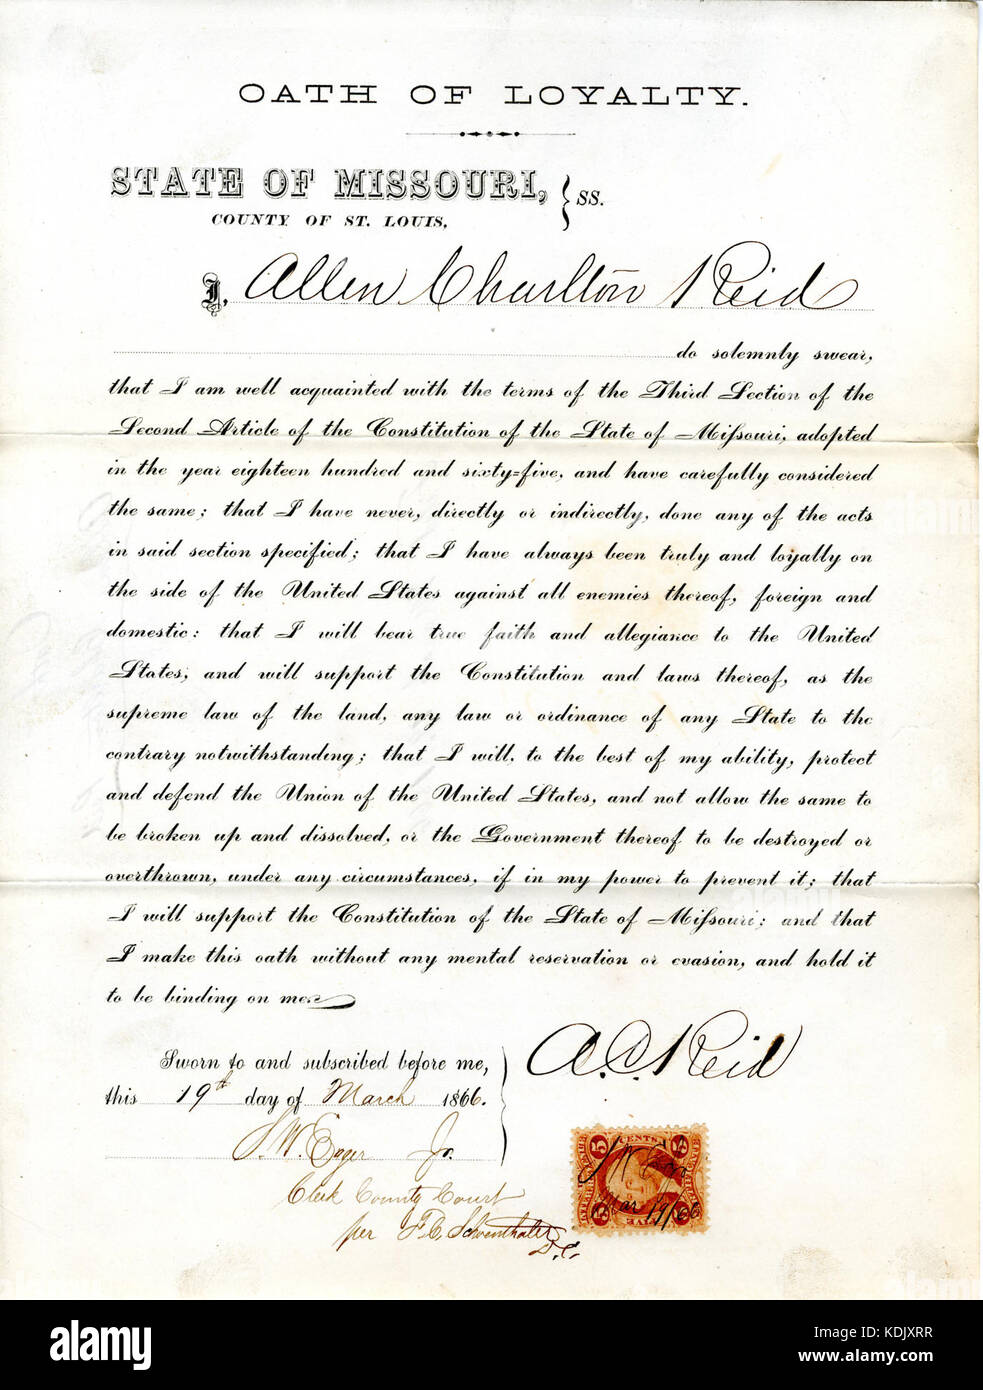 OATH OF LOYALTY.
STATE OF MISSOURI, } SS.
COUNTY OF ST. LOUIS.
I, Allen Charlton Reid
do solemnly swear,
that I am well acquainted with the terms of the Third Section of the
Second Article of the Constitution of the State of Miſsouri, adopted
in the year eighteen hundred and sixty=five, and have carefully considered
the same; that I have never, directly or indirectly, done any of the acts
in said section specified; that I have always been truly and loyally on
the side of the United States against all enemies thereof, foreign and
domestic: that I will bear true faith and allegiance to the United
States, and will support the Constitution and laws thereof, as the
supreme law of the land, any law or ordinance of any State to the
contrary notwithstanding; that I will, to the best of my ability, protect
and defend the Union of the United States, and not allow the same to
be broken up and dissolved, or the Government thereof to be destroyed or
overthrown, under any circumstances, if in my power to prevent it; that
I will support the Constitution of the State of Miſsouri; and that
I make this oath without any mental reservation or evasion, and hold it
to be binding on me.
A. C. Reid
Sworn to and subscribed before me,
this 19th day of March 1866.
Jr.
Clerk County Court
per
D.C.
5 CENTS 5
Mar 19/66
FIVE
alamy
Image ID: KDJXRR
www.alamy.com